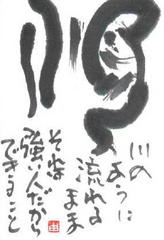 順
川の
ように
流れる
まま
それは
強い人だから
できること